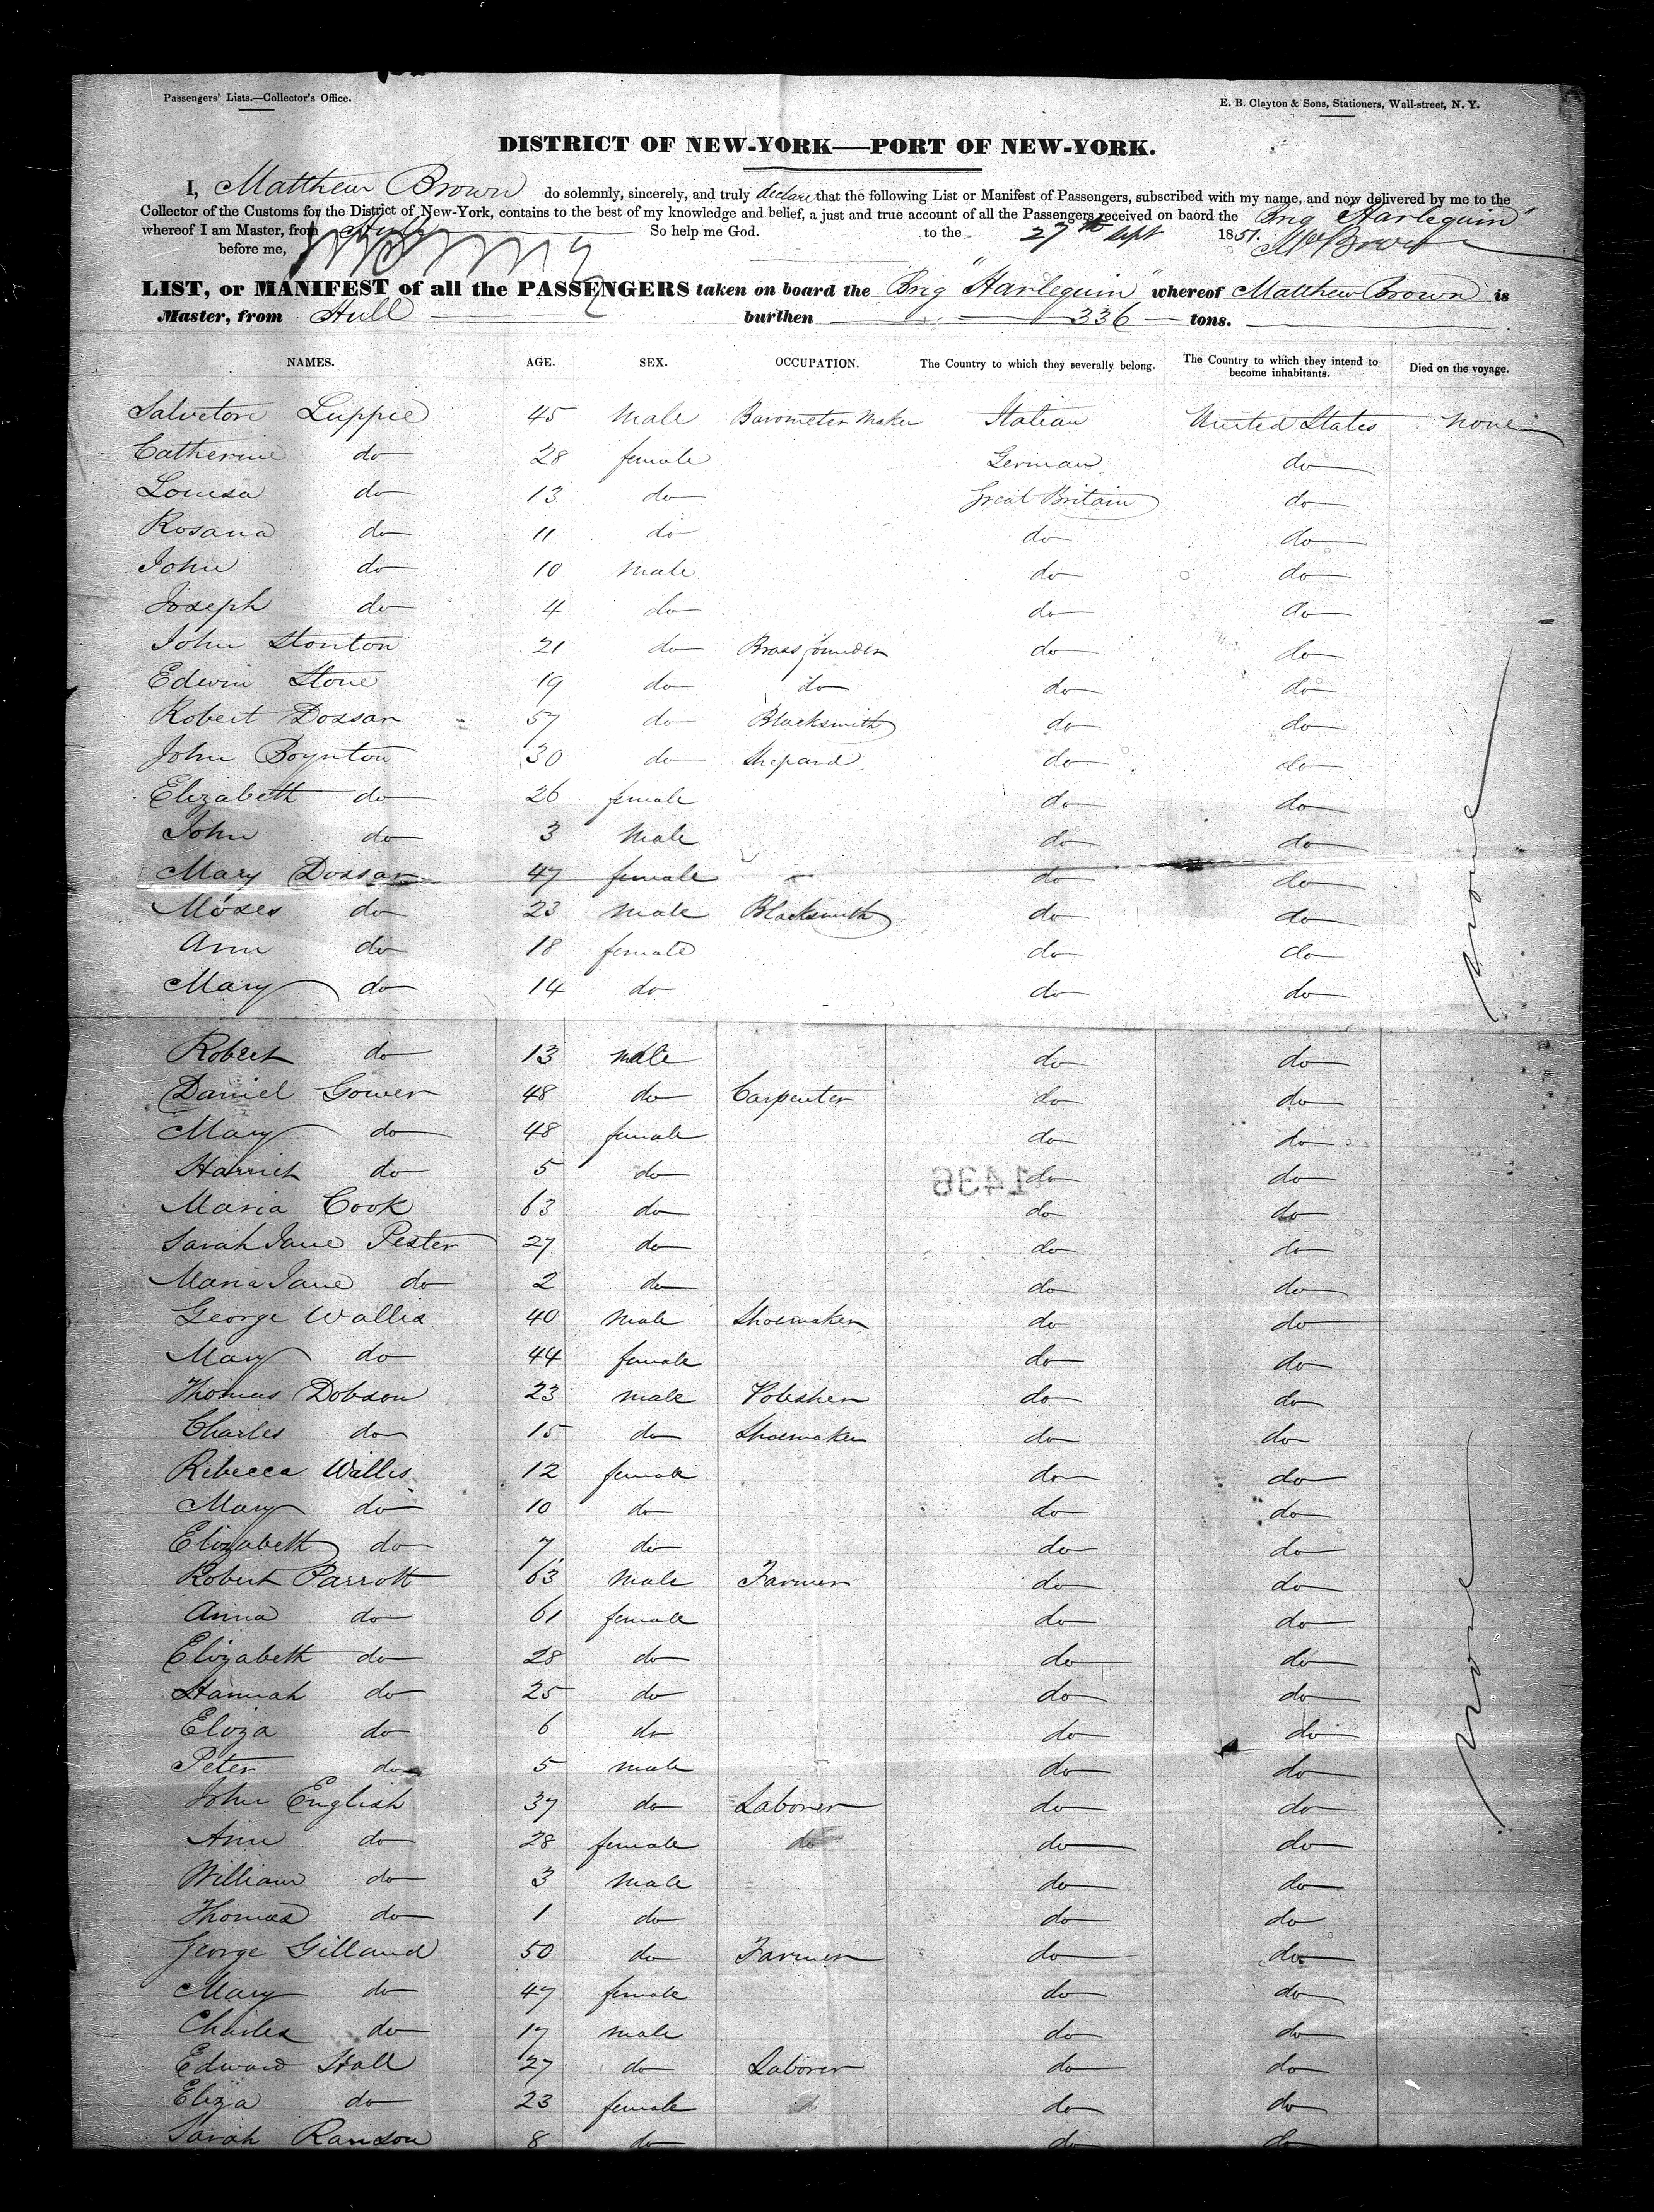 Passengers' Lists.—Collector's Office. E. B. Clayton & Sons, Stationers, Wall-street, N. Y.
DISTRICT OF NEW-YORK—PORT OF NEW-YORK.
I, Matthew Brown do solemnly, sincerely, and truly declare that the following List or Manifest of Passengers, subscribed with my name, and now delivered by me to the
Collector of the Customs for the District of New-York, contains to the best of my knowledge and belief, a just and true account of all the Passengers received on baord the Brig "Harlequin"
whereof I am Master, from Hull So help me God. to the 27th Sept 1851. M Brown
before me,
LIST, or MANIFEST of all the PASSENGERS taken on board the Brig "Harlequin" whereof Matthew Brown is
Master, from Hull burthen 336 tons.
NAMES. AGE. SEX. OCCUPATION. The Country to which they severally belong. The Country to which they intend to become inhabitants. Died on the voyage.
Salvetore Luppie 45 Male Barometer Maker Italian United States None
Catherine do 28 female German do
Louesa do 13 do Great Britain do
Rosana do 11 do do do
John do 10 Male do do
Joseph do 4 do do do
John Stonton 21 do Brass founder do do
Edwin Stone 19 do do do do
Robert Dossar 57 do Blacksmith do do
John Boynton 30 do Shepard do do
Elizabeth do 26 female do do
John do 3 Male do do None
Mary Dossar 47 female do do
Moses do 23 Male Blacksmith do do
Ann do 18 female do do
Mary do 14 do do do
Robert do 13 male do do
Daniel Gower 48 do Carpenter do do
Mary do 48 female do do
Harriet do 5 do do do
1436
Maria Cook 63 do do do
Sarah Jane Pester 27 do do do
Maria Jane do 2 do do do
George Wallis 40 Male Shoemaker do do
Mary do 44 female do do
Thomas Dobson 23 male Polisher do do
Charles do 15 do Shoemaker do do
Rebecca Wallis 12 female do do
Mary do 10 do do do
Elizabeth do 7 do do do
Robert Parrott 63 Male Farmer do do
Anna do 61 female do do
Elizabeth do 28 do do do None
Hannah do 25 do do do
Eliza do 6 do do do
Peter do 5 male do do
John English 37 do Laborer do do
Ann do 28 female do do do
William do 3 Male do do
Thomas do 1 do do do
George Gilland 50 do Farmer do do
Mary do 47 female do do
Charles do 17 male do do
Edward Hall 27 do Laborer do do
Eliza do 23 female do do
Sarah Ransom 8 do do do